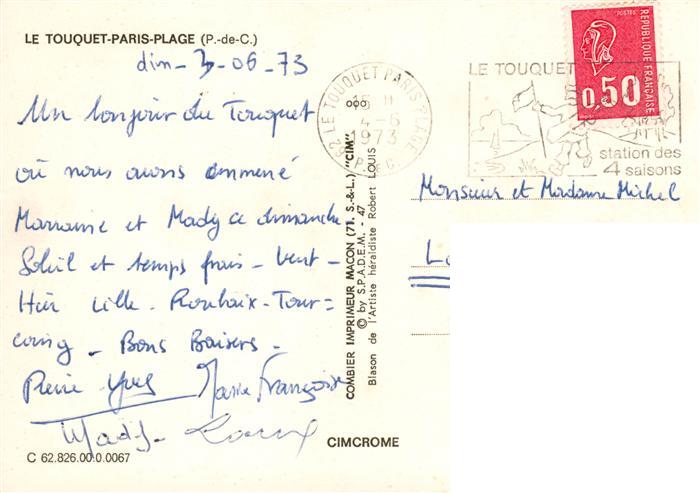 LE TOUQUET-PARIS-PLAGE (P.-de-C.)
dim-3-06-73
Un bonjour du Touquet
où nous avons emmené
Marraine et Mady ce dimanche
Soleil et temps frais - Vent -
Hier Lille - Roubaix - Tour=
coing - Bons Baisers -
Pierre Yves Marie Françoise
Mady -
CIMCROME
C 62.826.00.0.0067
COMBIER IMPRIMEUR MACON (71. S.-&-L.) "CIM"
© by S.P.A.D.E.M. - 47
Blason de l'Artiste héraldiste Robert LOUIS
62 LE TOUQUET PARIS-PLAGE
4-6
1973
P. DE C.
LE TOUQUET
station des
4 saisons
POSTES
REPUBLIQUE FRANÇAISE
0,50
Monsieur et Madame Michel